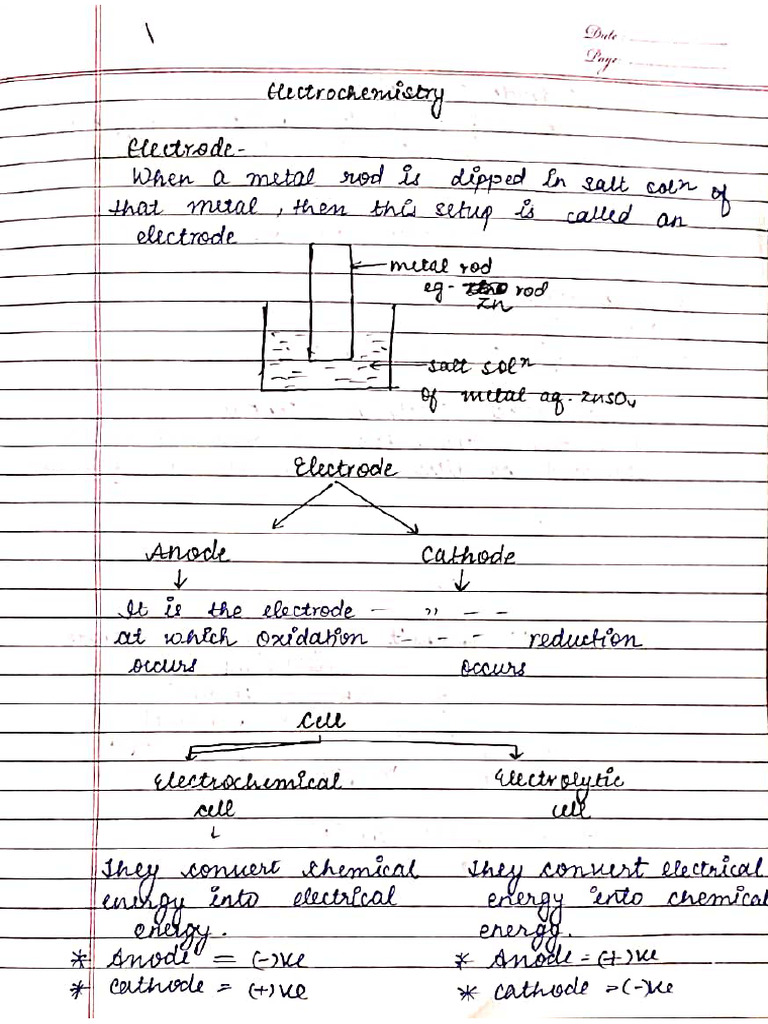 1
Date
Page
Electrochemistry
Electrode-
When a metal rod is dipped in salt solⁿ of
that metal, then this setup is called an
electrode
metal rod
eg- rod
Zn
salt solⁿ
of metal aq. ZnSO₄
Electrode
Anode Cathode
It is the electrode - " - -
at which oxidation - - - reduction
occurs occurs
Cell
Electrochemical Electrolytic
cell cell
They convert chemical They convert electrical
energy into electrical energy into chemical
energy. energy.
* Anode = (-)ve * Anode = (+)ve
* Cathode = (+)ve * Cathode = (-)ve